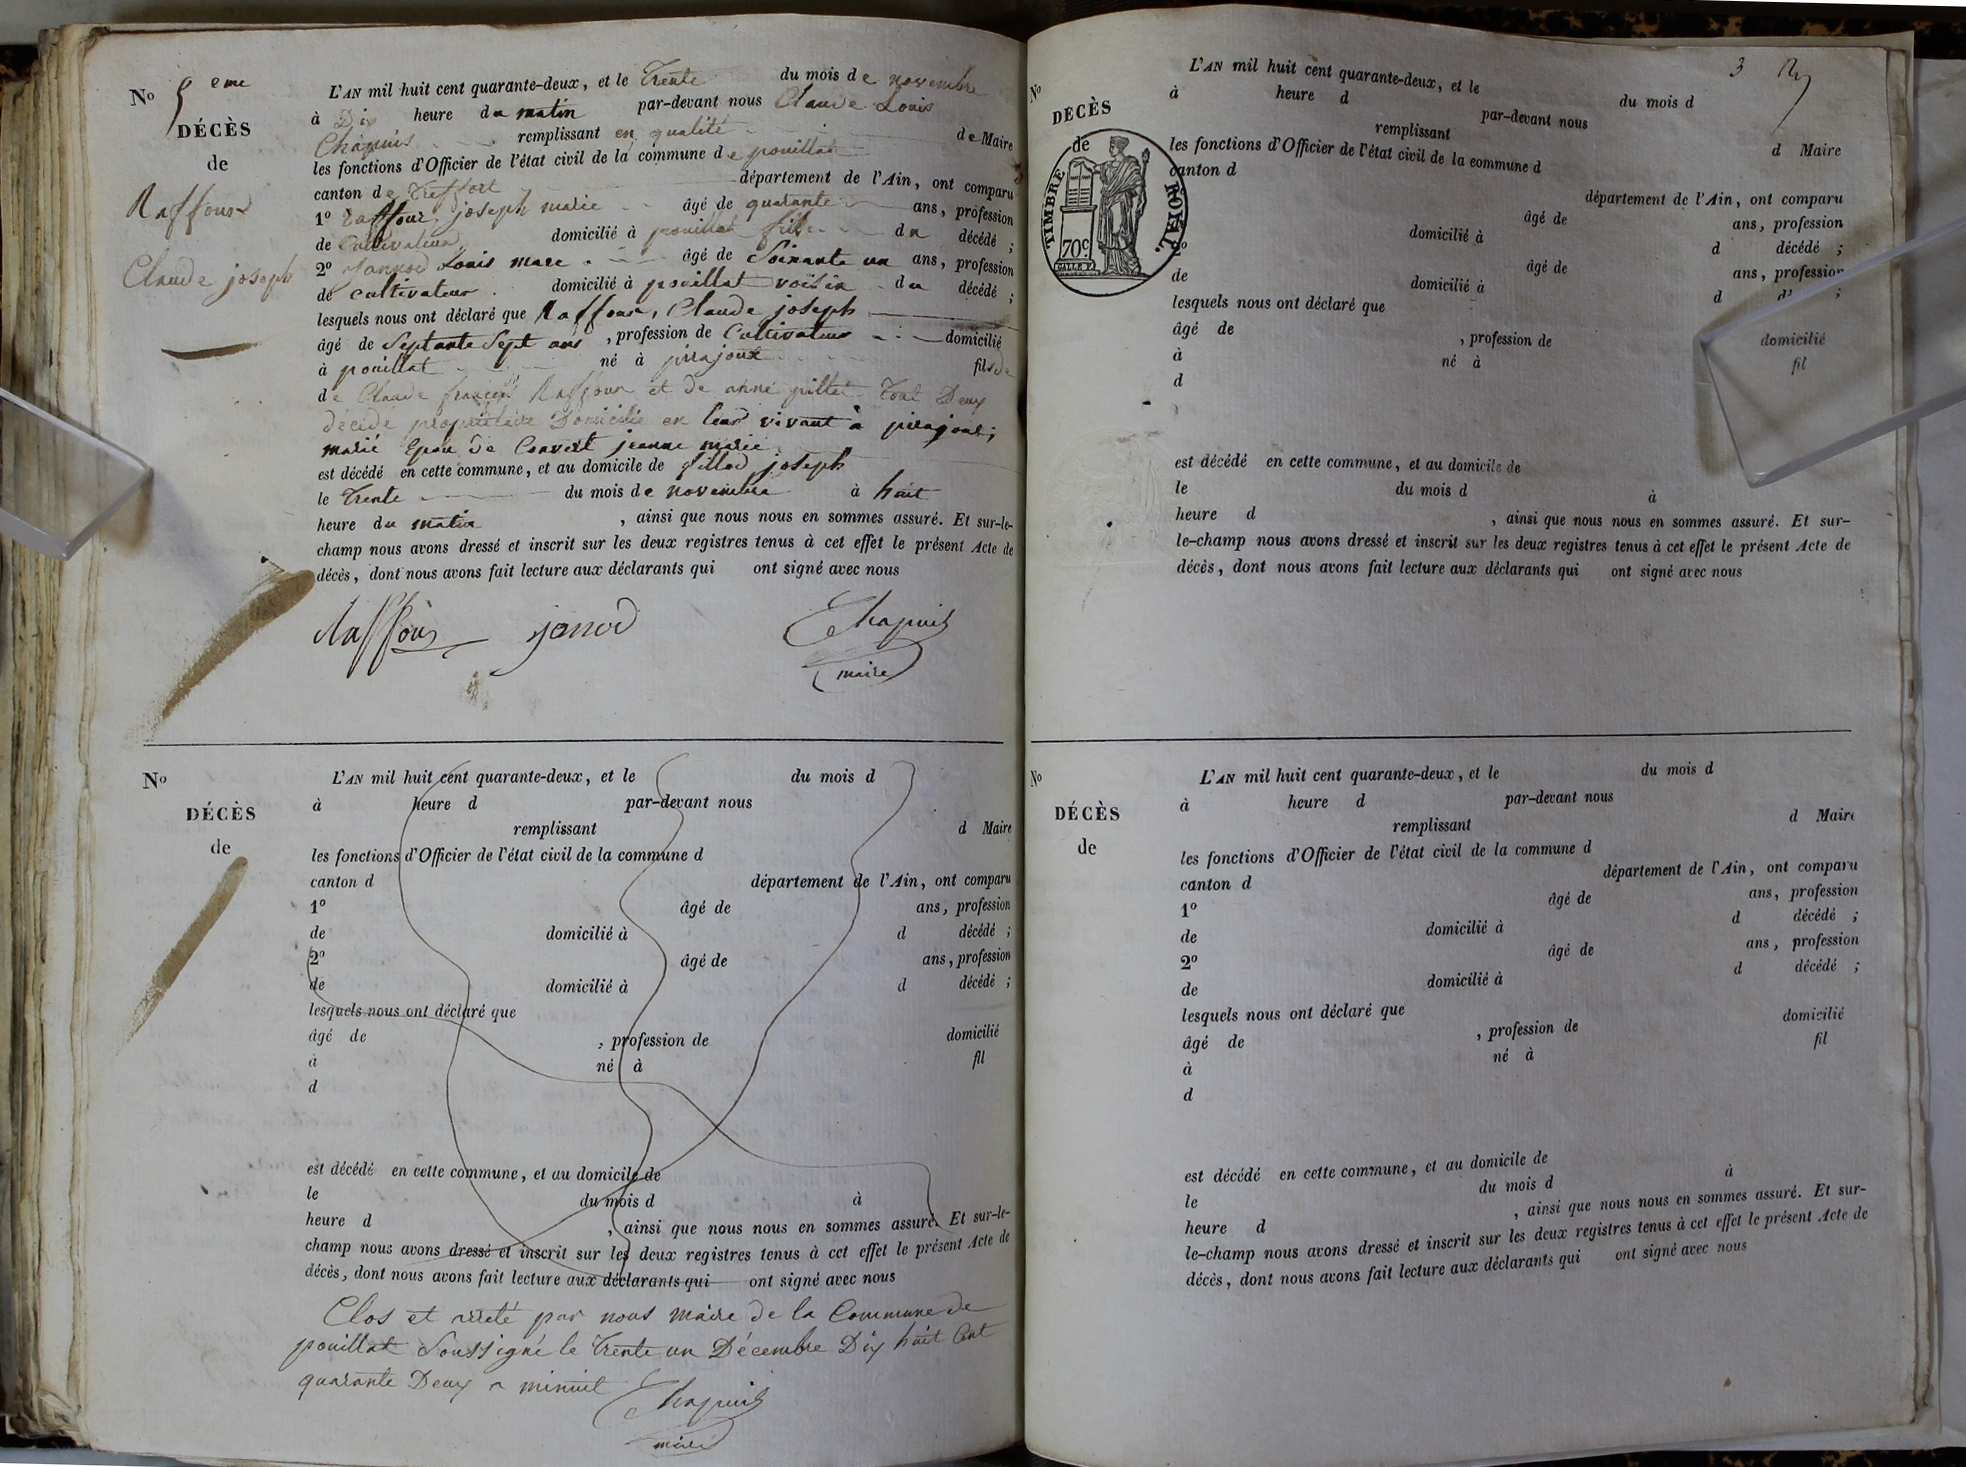 No 5 eme
DÉCÈS
de
Raffour
Claude joseph
L'AN mil huit cent quarante-deux, et le Trente du mois de novembre
à Dix heure du matin par-devant nous Claude Louis
Chapuis remplissant en qualité de Maire
les fonctions d'Officier de l'état civil de la commune de pouillat
canton de Treffort département de l'Ain, ont comparu
1o Raffour, joseph marie âgé de quarante ans, profession
de Cultivateur domicilié à pouillat fils du décédé ;
2o Louis marc âgé de Soixante un ans, profession
de cultivateur domicilié à pouillat voisin du décédé ;
lesquels nous ont déclaré que Raffour, Claude joseph
âgé de Septante Sept ans, profession de Cultivateur domicilié
à pouillat né à pirajoux fils de
de Claude françois Raffour et de anne pillet Tout Deux
décédé propriétaire Domicilié en leur vivant à pirajoux ;
marié Epou de Convert jeanne marie
est décédé en cette commune, et au domicile de joseph
le Trente du mois de novembre à huit
heure du matin, ainsi que nous nous en sommes assuré. Et sur-le-
champ nous avons dressé et inscrit sur les deux registres tenus à cet effet le présent Acte de
décès, dont nous avons fait lecture aux déclarants qui ont signé avec nous
Raffour janod Chapuis
maire
No
DÉCÈS
de
L'AN mil huit cent quarante-deux, et le du mois d
à heure d par-devant nous
remplissant d Maire
les fonctions d'Officier de l'état civil de la commune d
canton d département de l'Ain, ont comparu
1o âgé de ans, profession
de domicilié à d décédé ;
2o âgé de ans, profession
de domicilié à d décédé ;
lesquels nous ont déclaré que
âgé de , profession de domicilié
à né à fil
d
est décédé en cette commune, et au domicile de
le du mois d à
heure d , ainsi que nous nous en sommes assuré. Et sur-le-
champ nous avons dressé et inscrit sur les deux registres tenus à cet effet le présent Acte de
décès, dont nous avons fait lecture aux déclarants qui ont signé avec nous
Clos et arreté par nous maire de la Commune de
pouillat Soussigné le Trente un Décembre Dix huit Cent
quarante Deux a minuit Chapuis
maire
3
No
DÉCÈS
de
TIMBRE ROYAL.
70c
L'AN mil huit cent quarante-deux, et le du mois d
à heure d par-devant nous
remplissant d Maire
les fonctions d'Officier de l'état civil de la commune d
canton d département de l'Ain, ont comparu
âgé de ans, profession
domicilié à d décédé ;
âgé de ans, profession
de domicilié à d
lesquels nous ont déclaré que
âgé de , profession de domicilié
à né à fil
d
est décédé en cette commune, et au domicile de
le du mois d à
heure d , ainsi que nous nous en sommes assuré. Et sur-
le-champ nous avons dressé et inscrit sur les deux registres tenus à cet effet le présent Acte de
décès, dont nous avons fait lecture aux déclarants qui ont signé avec nous
No
DÉCÈS
de
L'AN mil huit cent quarante-deux, et le du mois d
à heure d par-devant nous
remplissant d Maire
les fonctions d'Officier de l'état civil de la commune d
canton d département de l'Ain, ont comparu
1o âgé de ans, profession
de domicilié à d décédé ;
2o âgé de ans, profession
de domicilié à d décédé ;
lesquels nous ont déclaré que
âgé de , profession de domicilié
à né à fil
d
est décédé en cette commune, et au domicile de
le du mois d à
heure d , ainsi que nous nous en sommes assuré. Et sur-
le-champ nous avons dressé et inscrit sur les deux registres tenus à cet effet le présent Acte de
décès, dont nous avons fait lecture aux déclarants qui ont signé avec nous